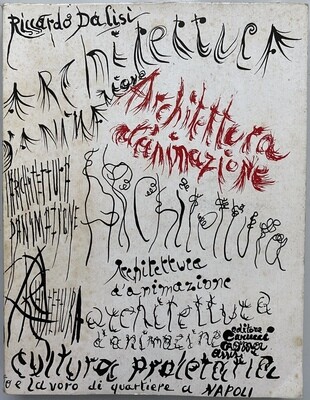 Riccardo Dalisi
Architettura
d'anima
zione
Architettura
d'animazione
ARCHITETTURA
D'ANIMAZIONE
Architettura
Architettura
d'animazione
architettura
d'animazione
editore
Carucci
assisi
cultura proletaria
e lavoro di quartiere a NAPOLI